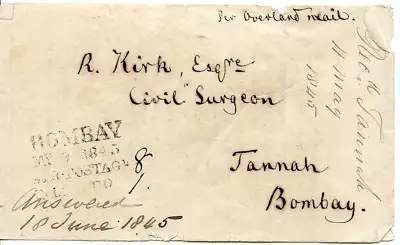 Per Overland mail.
R. Kirk, Esqre
Civil Surgeon
Tannah
Bombay.
BOMBAY
MY 1845
POSTAGE
8
1
Answered
18 June 1845
Tannah
11 May
1845